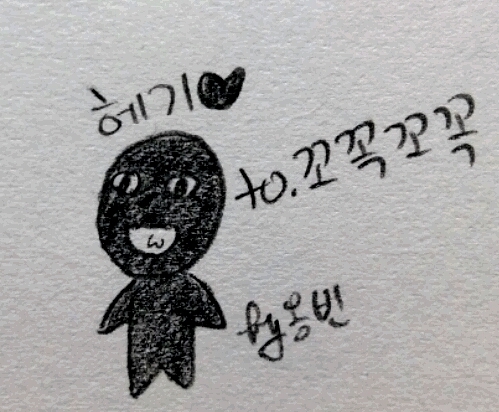 헤기♥
to.꼬꼭꼬꼭
by옹빈